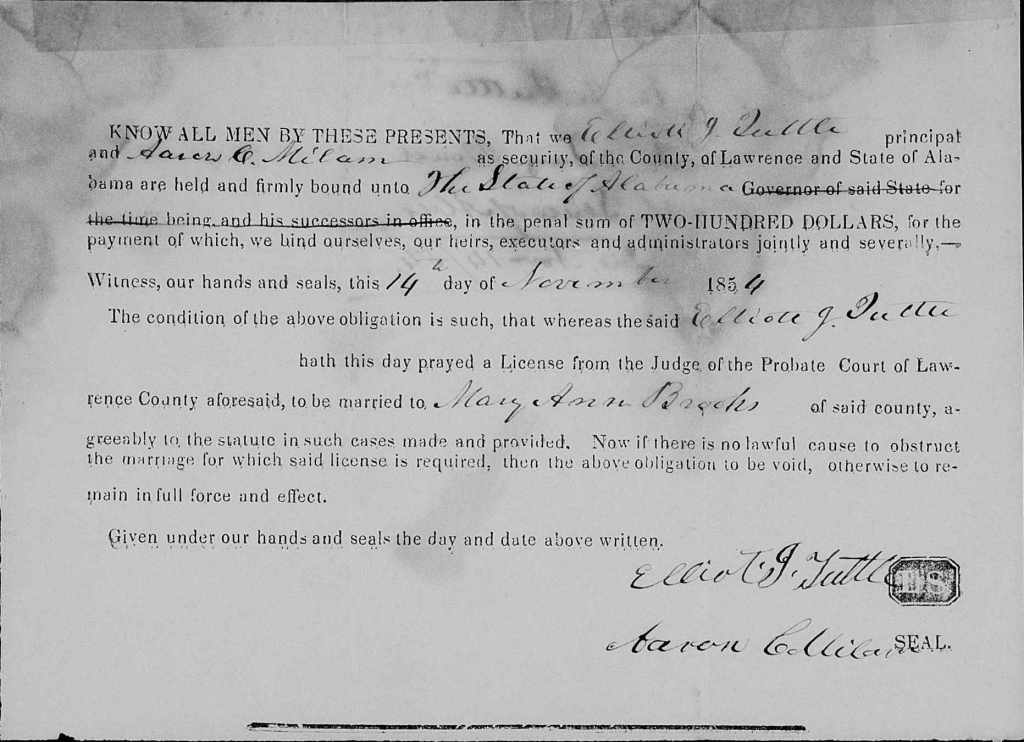 KNOW ALL MEN BY THESE PRESENTS, That we Elliott J. Tuttle principal
and Aaron C. Milam as security, of the County, of Lawrence and State of Ala-
bama are held and firmly bound unto The State of Alabama Governor of said State for
the time being, and his successors in office, in the penal sum of TWO-HUNDRED DOLLARS, for the
payment of which, we bind ourselves, our heirs, executors and administrators jointly and severally,—
Witness, our hands and seals, this 14th day of November 1854
The condition of the above obligation is such, that whereas the said Elliott J. Tuttle
hath this day prayed a License from the Judge of the Probate Court of Law-
rence County aforesaid, to be married to Mary Ann Brooks of said county, a-
greeably to the statute in such cases made and provided. Now if there is no lawful cause to obstruct
the marriage for which said license is required, then the above obligation to be void, otherwise to re-
main in full force and effect.
Given under our hands and seals the day and date above written.
Elliot J. Tuttle
Aaron C Milam SEAL.